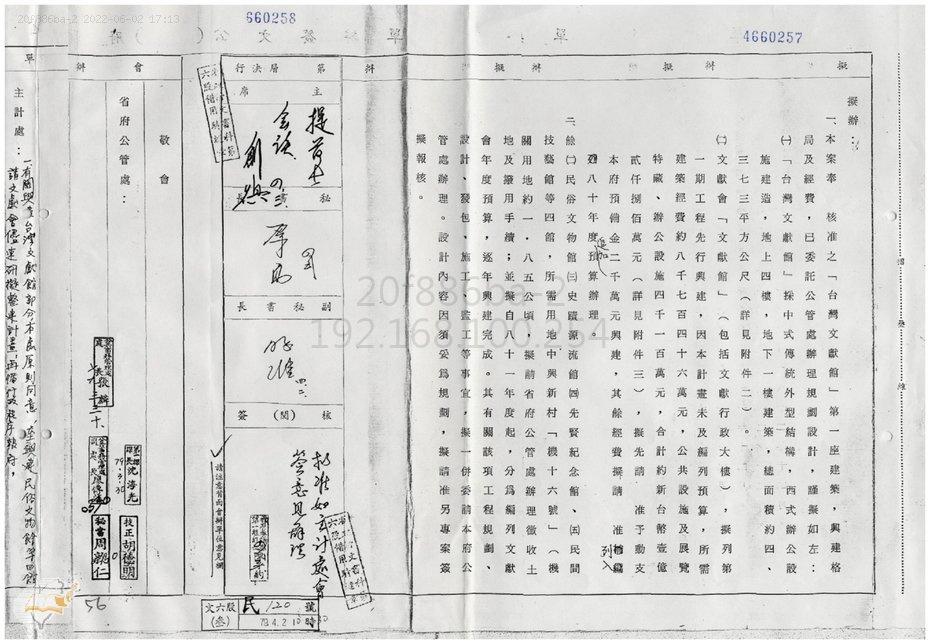 20f886ba-2 2022-06-02 17:13
660258
4660257
擬
辦
擬
辦
擬
辦
擬辦:
一、本案奉 核准之「台灣文獻館」第一座建築,興建格
局及經費,已委託公管處辦理規劃設計,謹擬如左:
㈠「台灣文獻館」採中式傳統外型結構,西式辦公設
施建造,地上四樓,地下一樓建築,總面積約四、
三七三平方公尺(詳見附件二)。
㈡文獻會「文獻館」(包括文獻行政大樓),擬列第
一期工程先行興建,因本計畫未及編列預算,所需
建築經費約八千七百四十六萬元,公共設施及展覽
特藏、辦公設施四千一百萬元,合計約新台幣壹億
貳仟捌佰萬元(詳見附件三),擬先請 准予動支
本府預備金二千萬元興建,其餘經費擬請 准
列入
八十年度
追加
預算辦理。
二、餘㈡民俗文物館㈢史蹟源流館㈣先賢紀念館、㈤民間
技藝館等四館,所需用地中興新村「機十六號」(機
關用地約一.八五公頃)擬請省府公管處辦理徵收土
地及撥用手續;並擬自八十一年度起,分為編列文獻
會年度預算,逐年興建完成。其有關該項工程規劃、
設計、發包、施工、監工等事宜,擬一併委請本府公
管處辦理。設計內容因須妥為規劃,擬請准另專案簽
擬報核。
第
層決行
主
席
提首長
會談
秘
書
長
副秘書長
核
(閱)
簽
擬准如主計處會
簽意見辦理
請注意背面會辦單位意見欄
會
辦
敬
會
省府公管處:
79.3.30
技正胡德明
秘書周
仁
56
文六股
(叁)
民120號
79.4.2 10時
單
主計處:
一、有關興建台灣文獻館部分本處原則同意,至興建民俗文物館等四館
請文獻會儘速研擬整來計畫,再循行政程序報府,
20f886ba-2
192.168.100.254